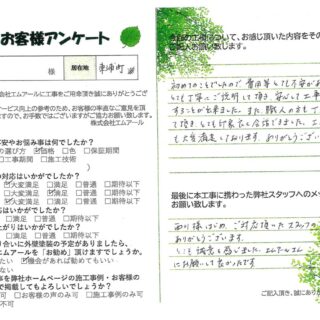 お客様アンケート
様 居住地 東浦町
式会社エムアール工事をご用命頂き誠にありがとうござ
ービス向上の参考のため、お客様の率直なご意見を頂
ますので、お手数ではございますがご協力お願い致します。
株式会社エムアール
安やお悩み事は何でしたか？
の選び方 ☑価格 □色 □保証期間
□工事期間 □施工技術
の対応はいかがでしたか？
☑大変満足 □満足 □普通 □期待以下
☑大変満足 □満足 □普通 □期待以下
応はいかがでしたか？
□満足 □普通 □期待以下
上がりはいかがでしたか？
□満足 □普通 □期待以下
り合いに外壁塗装の予定がありましたら、
エムアールを「お勧め」頂けますでしょうか。
たい ☑機会があれば勧めてもいい
ない
事を弊社ホームページの施工事例・お客様の
て掲載してもよろしいでしょうか？
可 □お客様の声のみ可 □施工事例のみ可
不可
今回の工事について、お感じ頂いた内容をその
ご記入お願い致します。
初めてのことでしたので費用等とても不安があ
とても丁寧にご説明して頂き、安心して工事
することが出来ました。また、職人の方も
て頂き、とても印象良く
も大変満足しております。ありがとうござい
最後に本工事に携わった弊社スタッフへのメッ
お願い致します。
ご対応頂いたスタッフの
ありがとうございます。
とても誠意を感じました。エムアールさん
にお願いして良かったです
ご記入頂き、誠にありがと